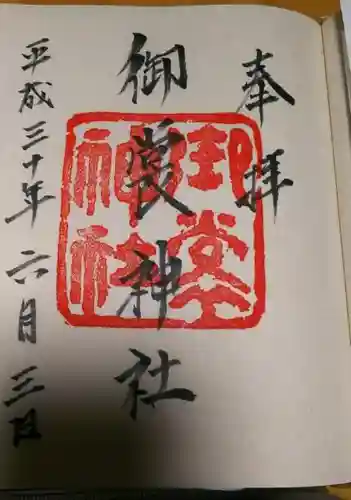 奉拝
御裳神社
平成三十年六月三日